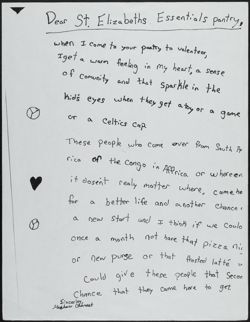 Dear St. Elizabeths Essentials pantry,
when I come to your pantry to valenteer,
I get a warm feeling in my heart, a sense
of comunity and that sparkle in the
kids eyes when they get a toy or a game
or a Celtics cap
These people who came over from South Af
rica or the Congo in Affrica or whereever
it dosen't really matter where, come here
for a better life and another chance
a new start and I think if we could
once a month not have that pizza
or new purse or that frosted latté
Could give these people that Secon
Chance that they came here to get
Sincerley,